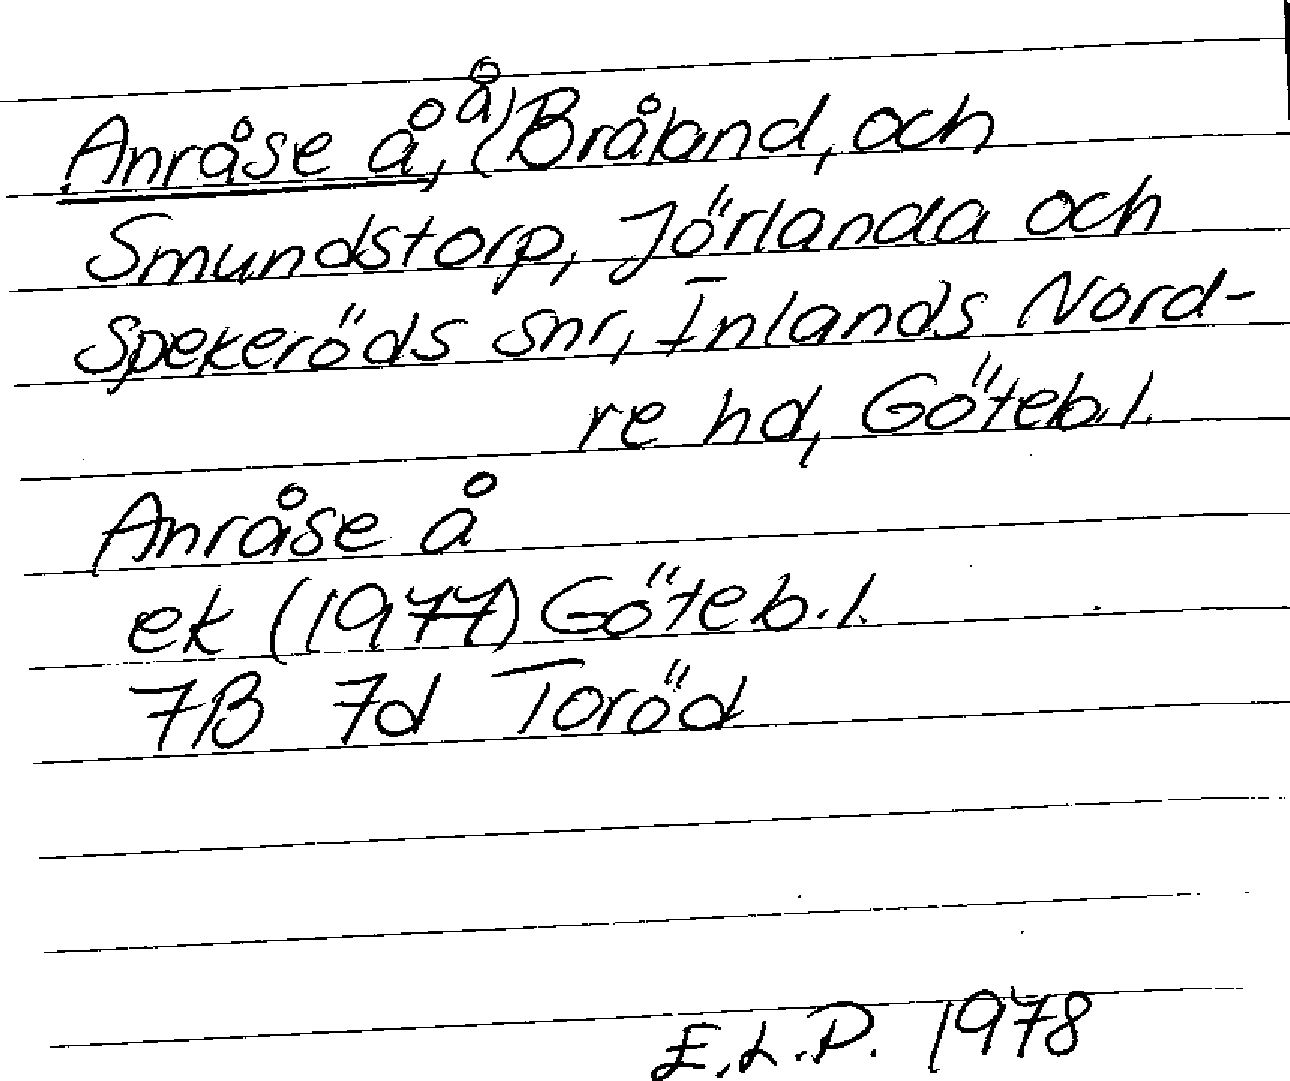 Anråse å, å) (Bråland, och
Smundstorp, Jörlanda och
Spekeröds snr, Inlands Nord-
re hd, Göteb.l.
Anråse å
ek (1977) Göteb.l.
7B 7d Toröd
E.L.P. 1978